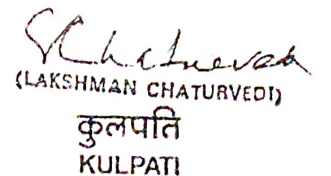 (LAKSHMAN CHATURVEDI)
कुलपति
KULPATI